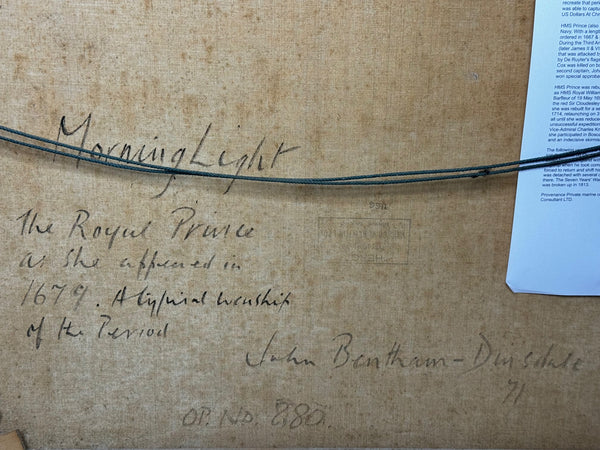 recreate that peri
was able to captu
US Dollars At Chri
HMS Prince (also
Navy. With a lengt
ordered in 1667 &
During the Third An
(later James II & VI
that was attacked b
by De Ruyter's flags
Cox was killed on bo
second captain, Joh
won special approba
HMS Prince was rebu
as HMS Royal William
Barfleur of 19 May 16
the red Sir Cloudesley
she was rebuilt for a se
1714, relaunching on 3
all until she was reduce
unsuccessful expedition
Vice-Admiral Charles Kn
she participated in Bosca
and an indecisive skirmis
The following
forced to return and shift hi
was detached with several o
there. The Seven Years' Wa
was broken up in 1813.
Provenance Private marine c
Consultant LTD.
Morning Light
The Royal Prince
as she appeared in
1679. A typical warship
of the Period
John Bentham-Dinsdale
71
OP. NO. 880.